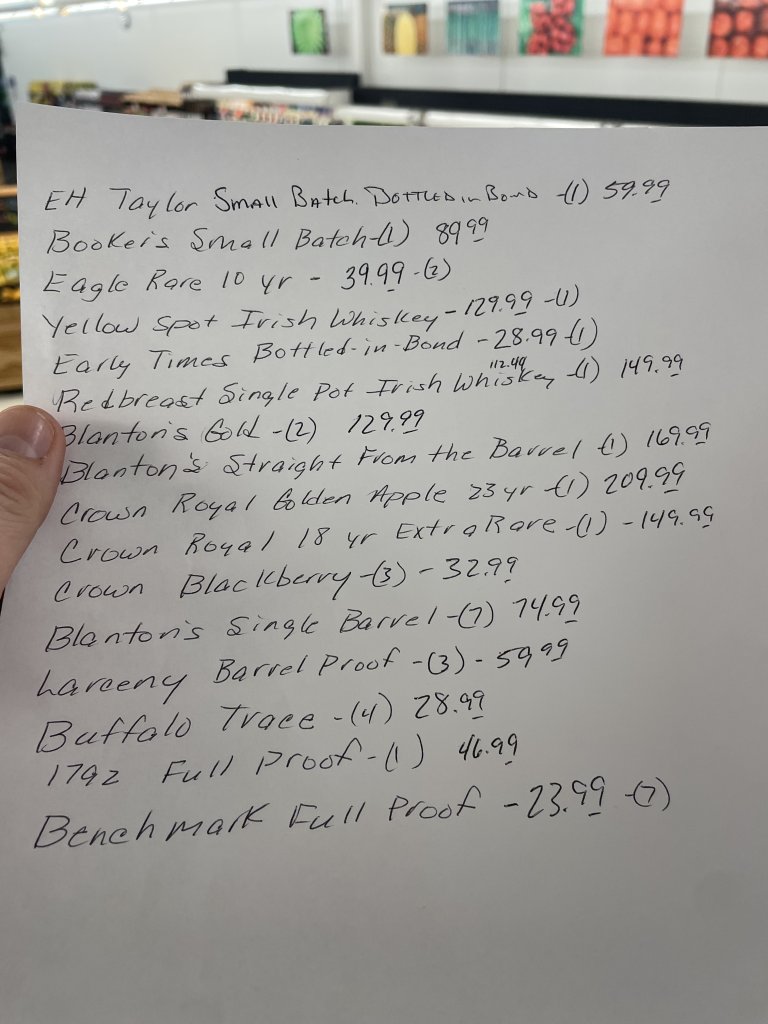 EH Taylor Small Batch. Bottled in Bond -(1) 59.99
Booker's Small Batch-(1) 89.99
Eagle Rare 10 yr - 39.99 -(2)
Yellow Spot Irish Whiskey - 129.99 -(1)
Early Times Bottled-in-Bond - 28.99 (1)
112.49
Redbreast Single Pot Irish Whiskey -(1) 149.99
Blanton's Gold -(2) 129.99
Blanton's Straight From the Barrel (1) 169.99
Crown Royal Golden Apple 23 yr -(1) 209.99
Crown Royal 18 yr Extra Rare -(1) - 149.99
Crown Blackberry -(3) - 32.99
Blanton's Single Barrel -(7) 74.99
Larceny Barrel Proof -(3) - 59.99
Buffalo Trace -(4) 28.99
1792 Full Proof -(1) 46.99
Benchmark Full Proof - 23.99 -(7)